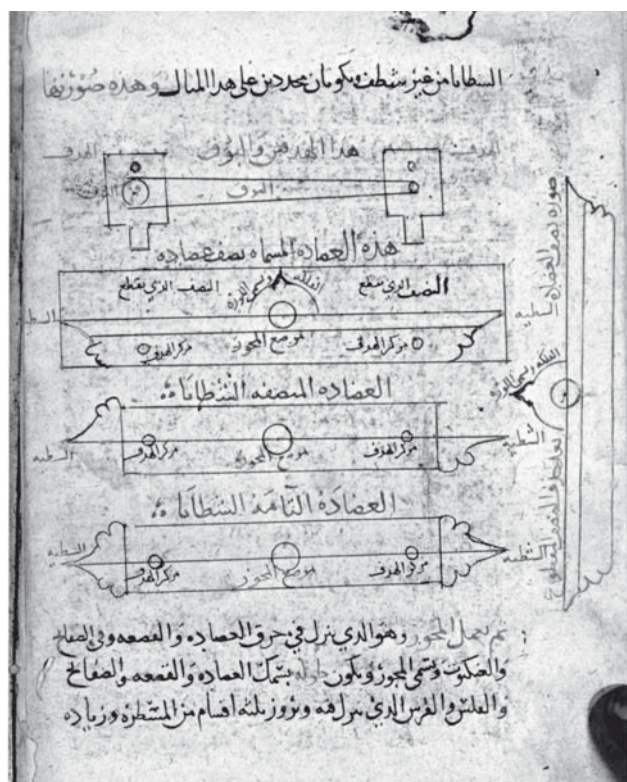 الشظايا من غير شطف ويكونان محددين على هذا المثال وهذه صورتها
الهدف هذا الهدفين والبوق الهدف
البوق الثقب
هذه العضاده المسماه نصف عضاده
النصف الذي يقطع الفلكه وتسمى النصف الذي يقطع
الشظيه الشظيه
مركز الهدف موضع المحور مركز الهدف
العضاده المنصفه الشظايا
الشظيه مركز الهدف موضع المحور مركز الهدف الشظيه
العضادة التامة الشظايا
الشظيه مركز الهدف موضع المحور مركز الهدف الشظيه
صورة نصف العضادة
الفلكه وتسمى
بعد قطع النصف المقطوع
ثم يعمل المحور وهو الذي ينزل في خرق العضاده والقصعه وفي الصفائح
والعنكبوت ويسمى المحور ويكون طوله بسمك العضاده والقصعه والصفائح
والفلس والفرس الذي ينزل فيه وبروز ثلثه اقسام من المسطرة وزياده